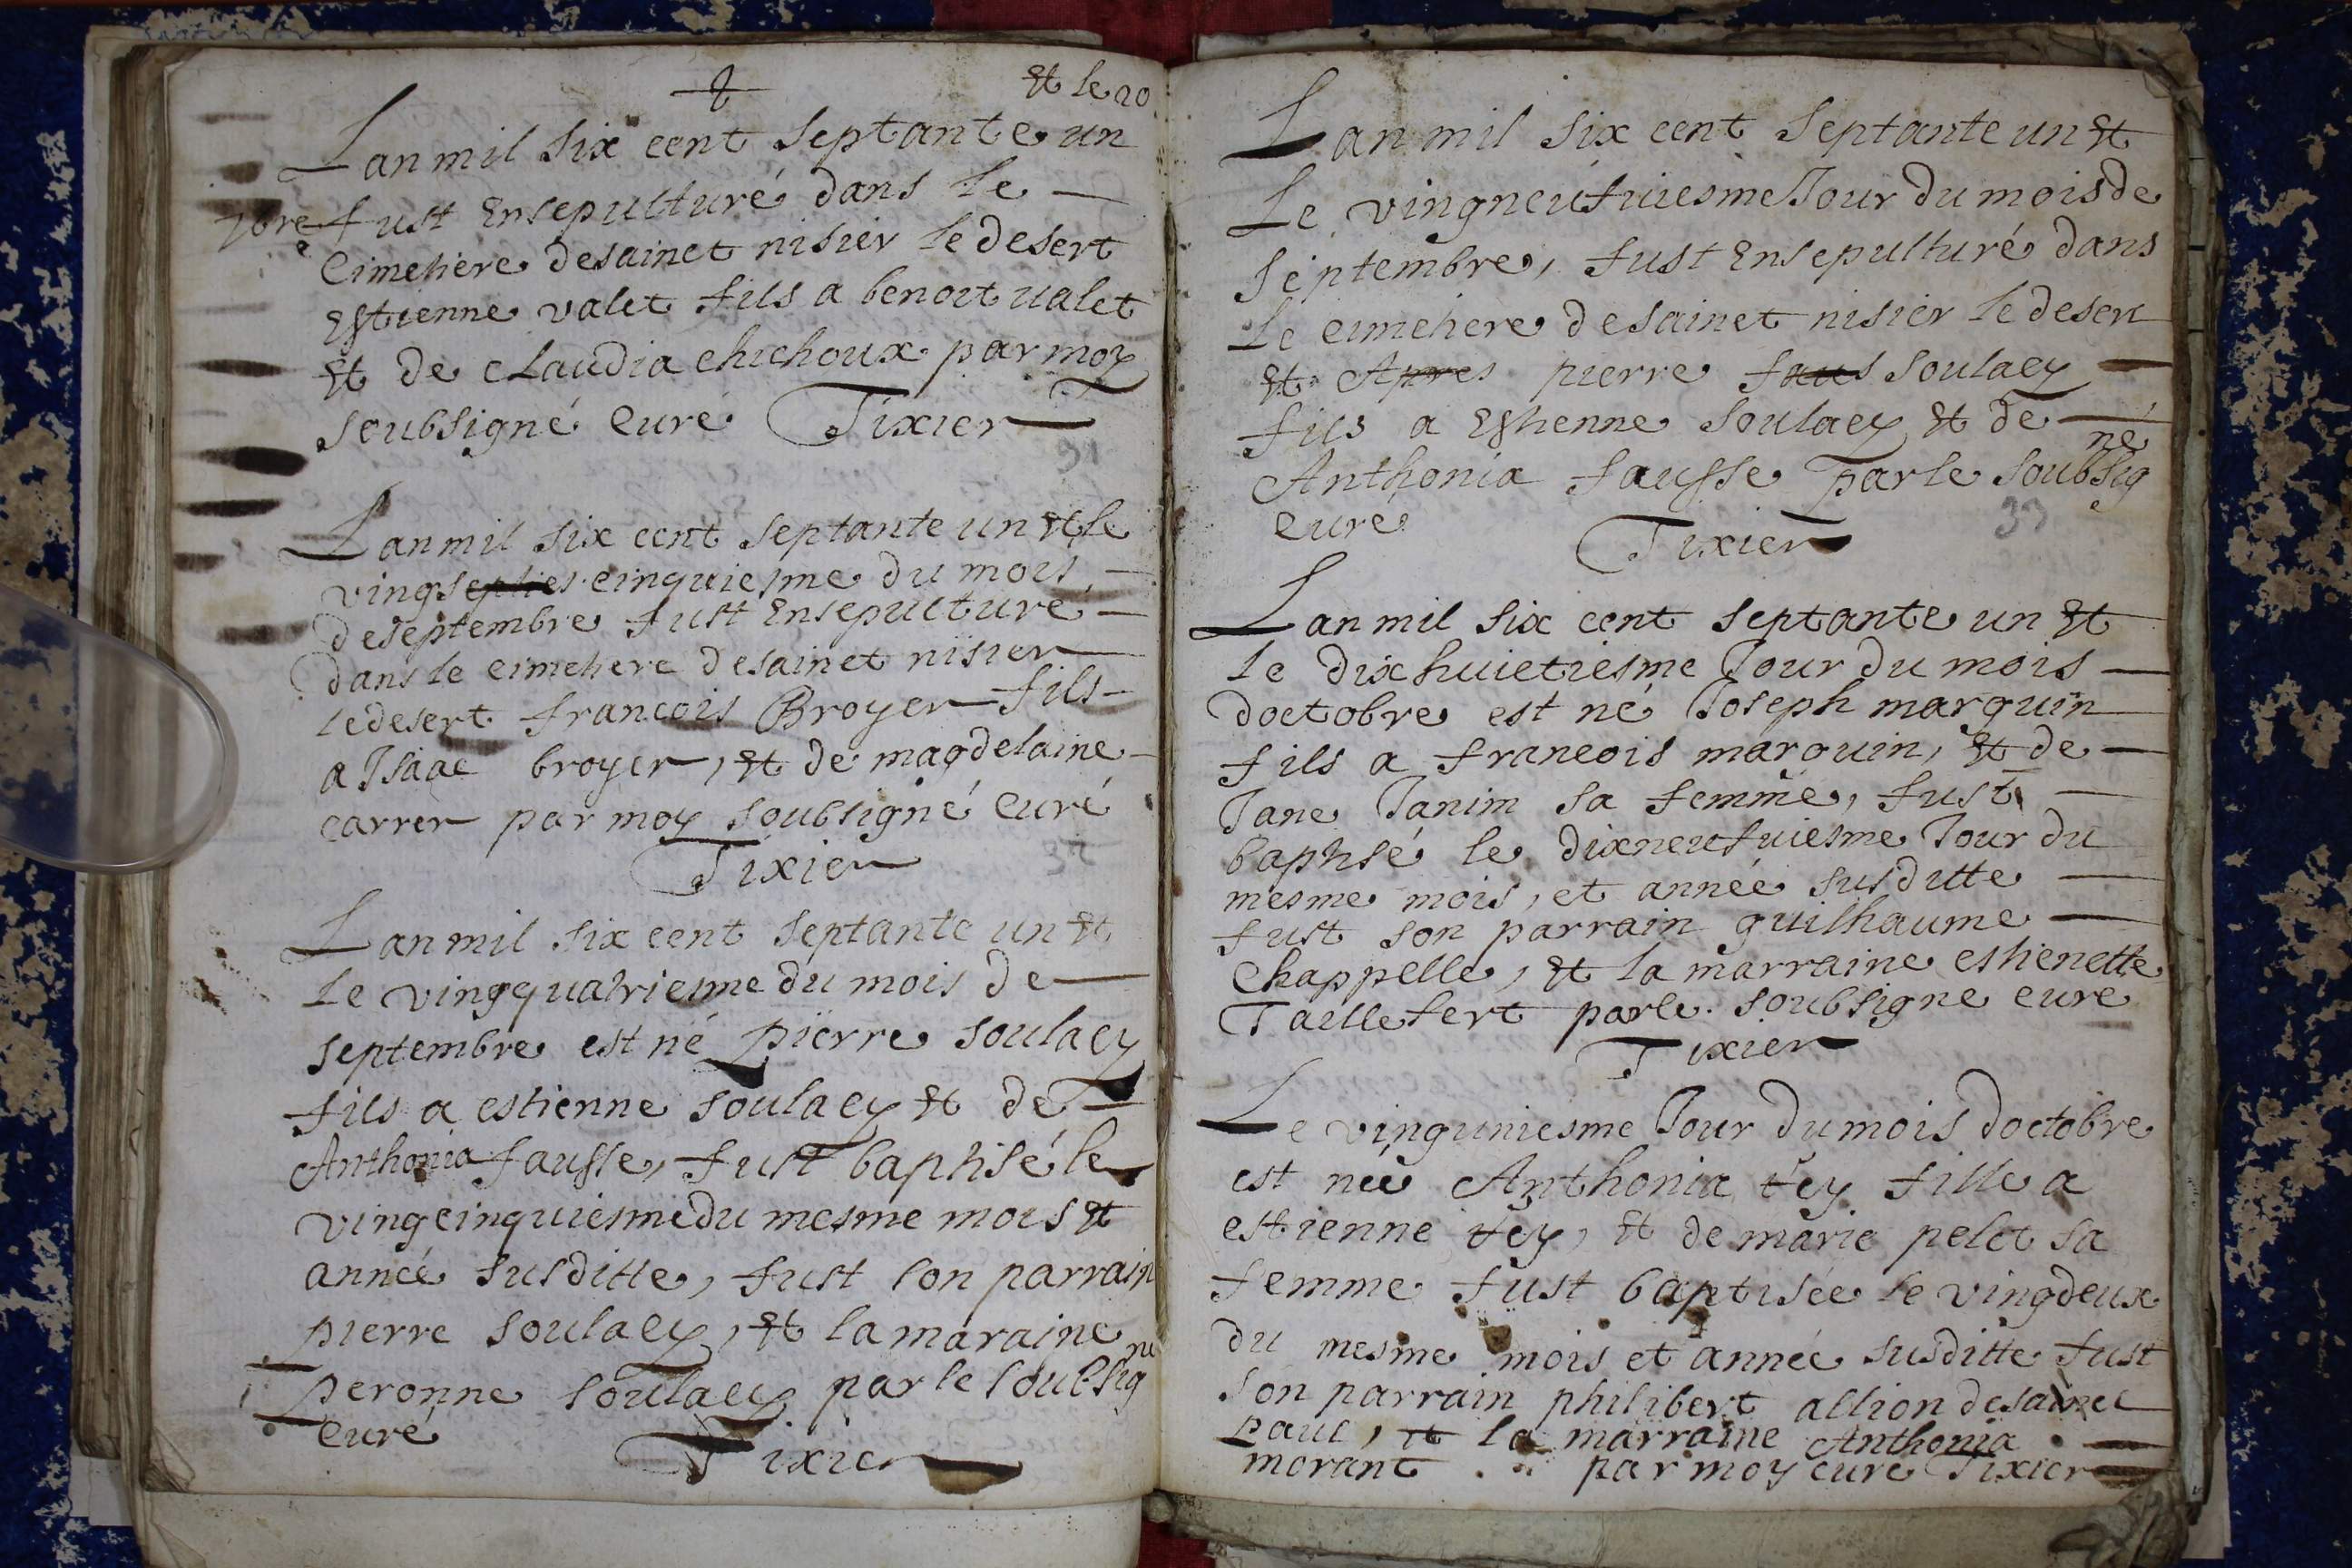 Et le 20
Lan mil six cent septante un
7bre fust ensepulturé dans le
Cimetiere de sainct nisier le desert
Estienne valet fils a benoit valet
Et de claudia chichoux par moy
soubsigné Curé Tixier
31
Lan mil six cent septante un et le
vingsepties cinquiesme du mois
de septembre fust ensepulturé
dans le cimetiere de sainct nisier
le desert francois Broyer fils
a Isaac broyer, Et de magdelaine
carrer par moy soubsigné Curé
Tixier
32
Lan mil six cent septante un Et
Le vingquatriesme du mois de
septembre est né pierre soulacy
fils a estienne soulacy Et de
Anthonia fausse, fust baptisé le
vingcinquiesme du mesme mois Et
année susditte, fust son parrain
pierre soulacy, Et la maraine
peronne soulacy par le soubsigné
Curé
Tixier
Lan mil six cent septante un Et
Le vingneufuiesme Jour du mois de
septembre, fust Ensepulturé dans
Le cimetiere de sainct nisier le desert
Et Apres pierre faus soulacy
fils a Estienne soulacy Et de
Anthonia fausse par le soubsigné
curé
Tixier
33
Lan mil six cent septante un Et
Le dixhuictiesme Jour du mois
doctobre est né Joseph marquin
fils a francois marquin, Et de
Jane Janim sa femme, fust
baptisé le dixneufuiesme Jour du
mesme mois, et année susditte
fust son parrain guilhaume
Chappelle, Et la marraine estienette
Taillefert par le soubsigne cure
Tixier
Le vinguniesme Jour du mois doctobre
est née Anthonia fey fille a
estienne fey, Et de marie pelet sa
femme fust baptisée le vingdeux
du mesme mois et année susditte fust
son parrain philibert allion de sainct
paul, et la marraine Anthonia
morant par moy cure Tixier